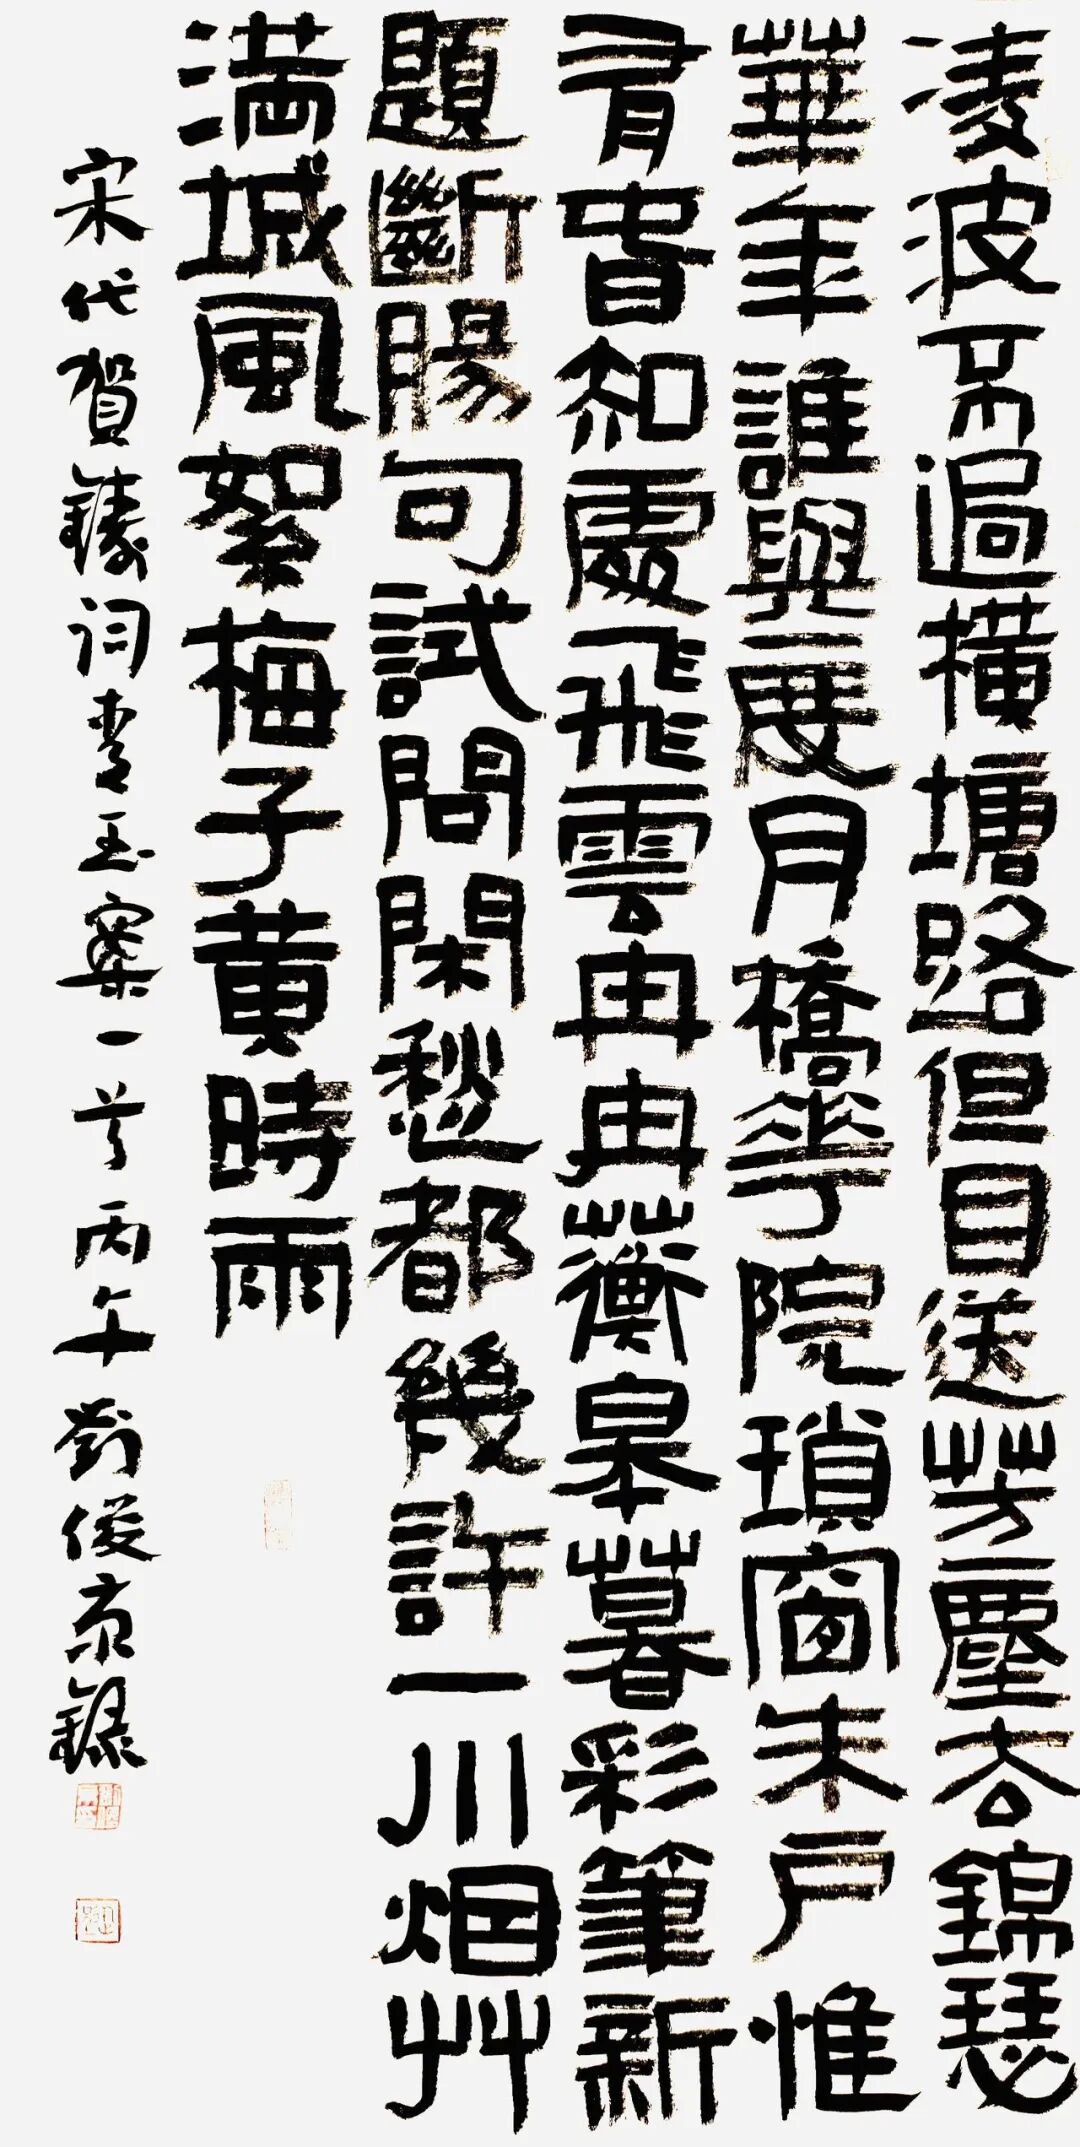 凌波不過横塘路但目送芳塵去錦瑟
華年誰與度月橋花院瑣窗朱戶惟
有春知處飛雲冉冉蘅皋暮彩筆新
題斷腸句試問閑愁都幾許一川烟艸
満城風絮梅子黄時雨
宋代賀鑄词青玉案一首丙午劉俊京錄